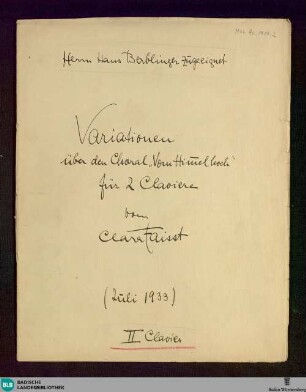 Herrn Hans Berblinger zugeeignet
Variationen
über den Choral „Vom Himel hoch“
für 2 Claviere
von
Clara Faisst
(Juli 1933)
II Clavier
BLB
BADISCHE
LANDESBIBLIOTHEK
Baden-Württemberg